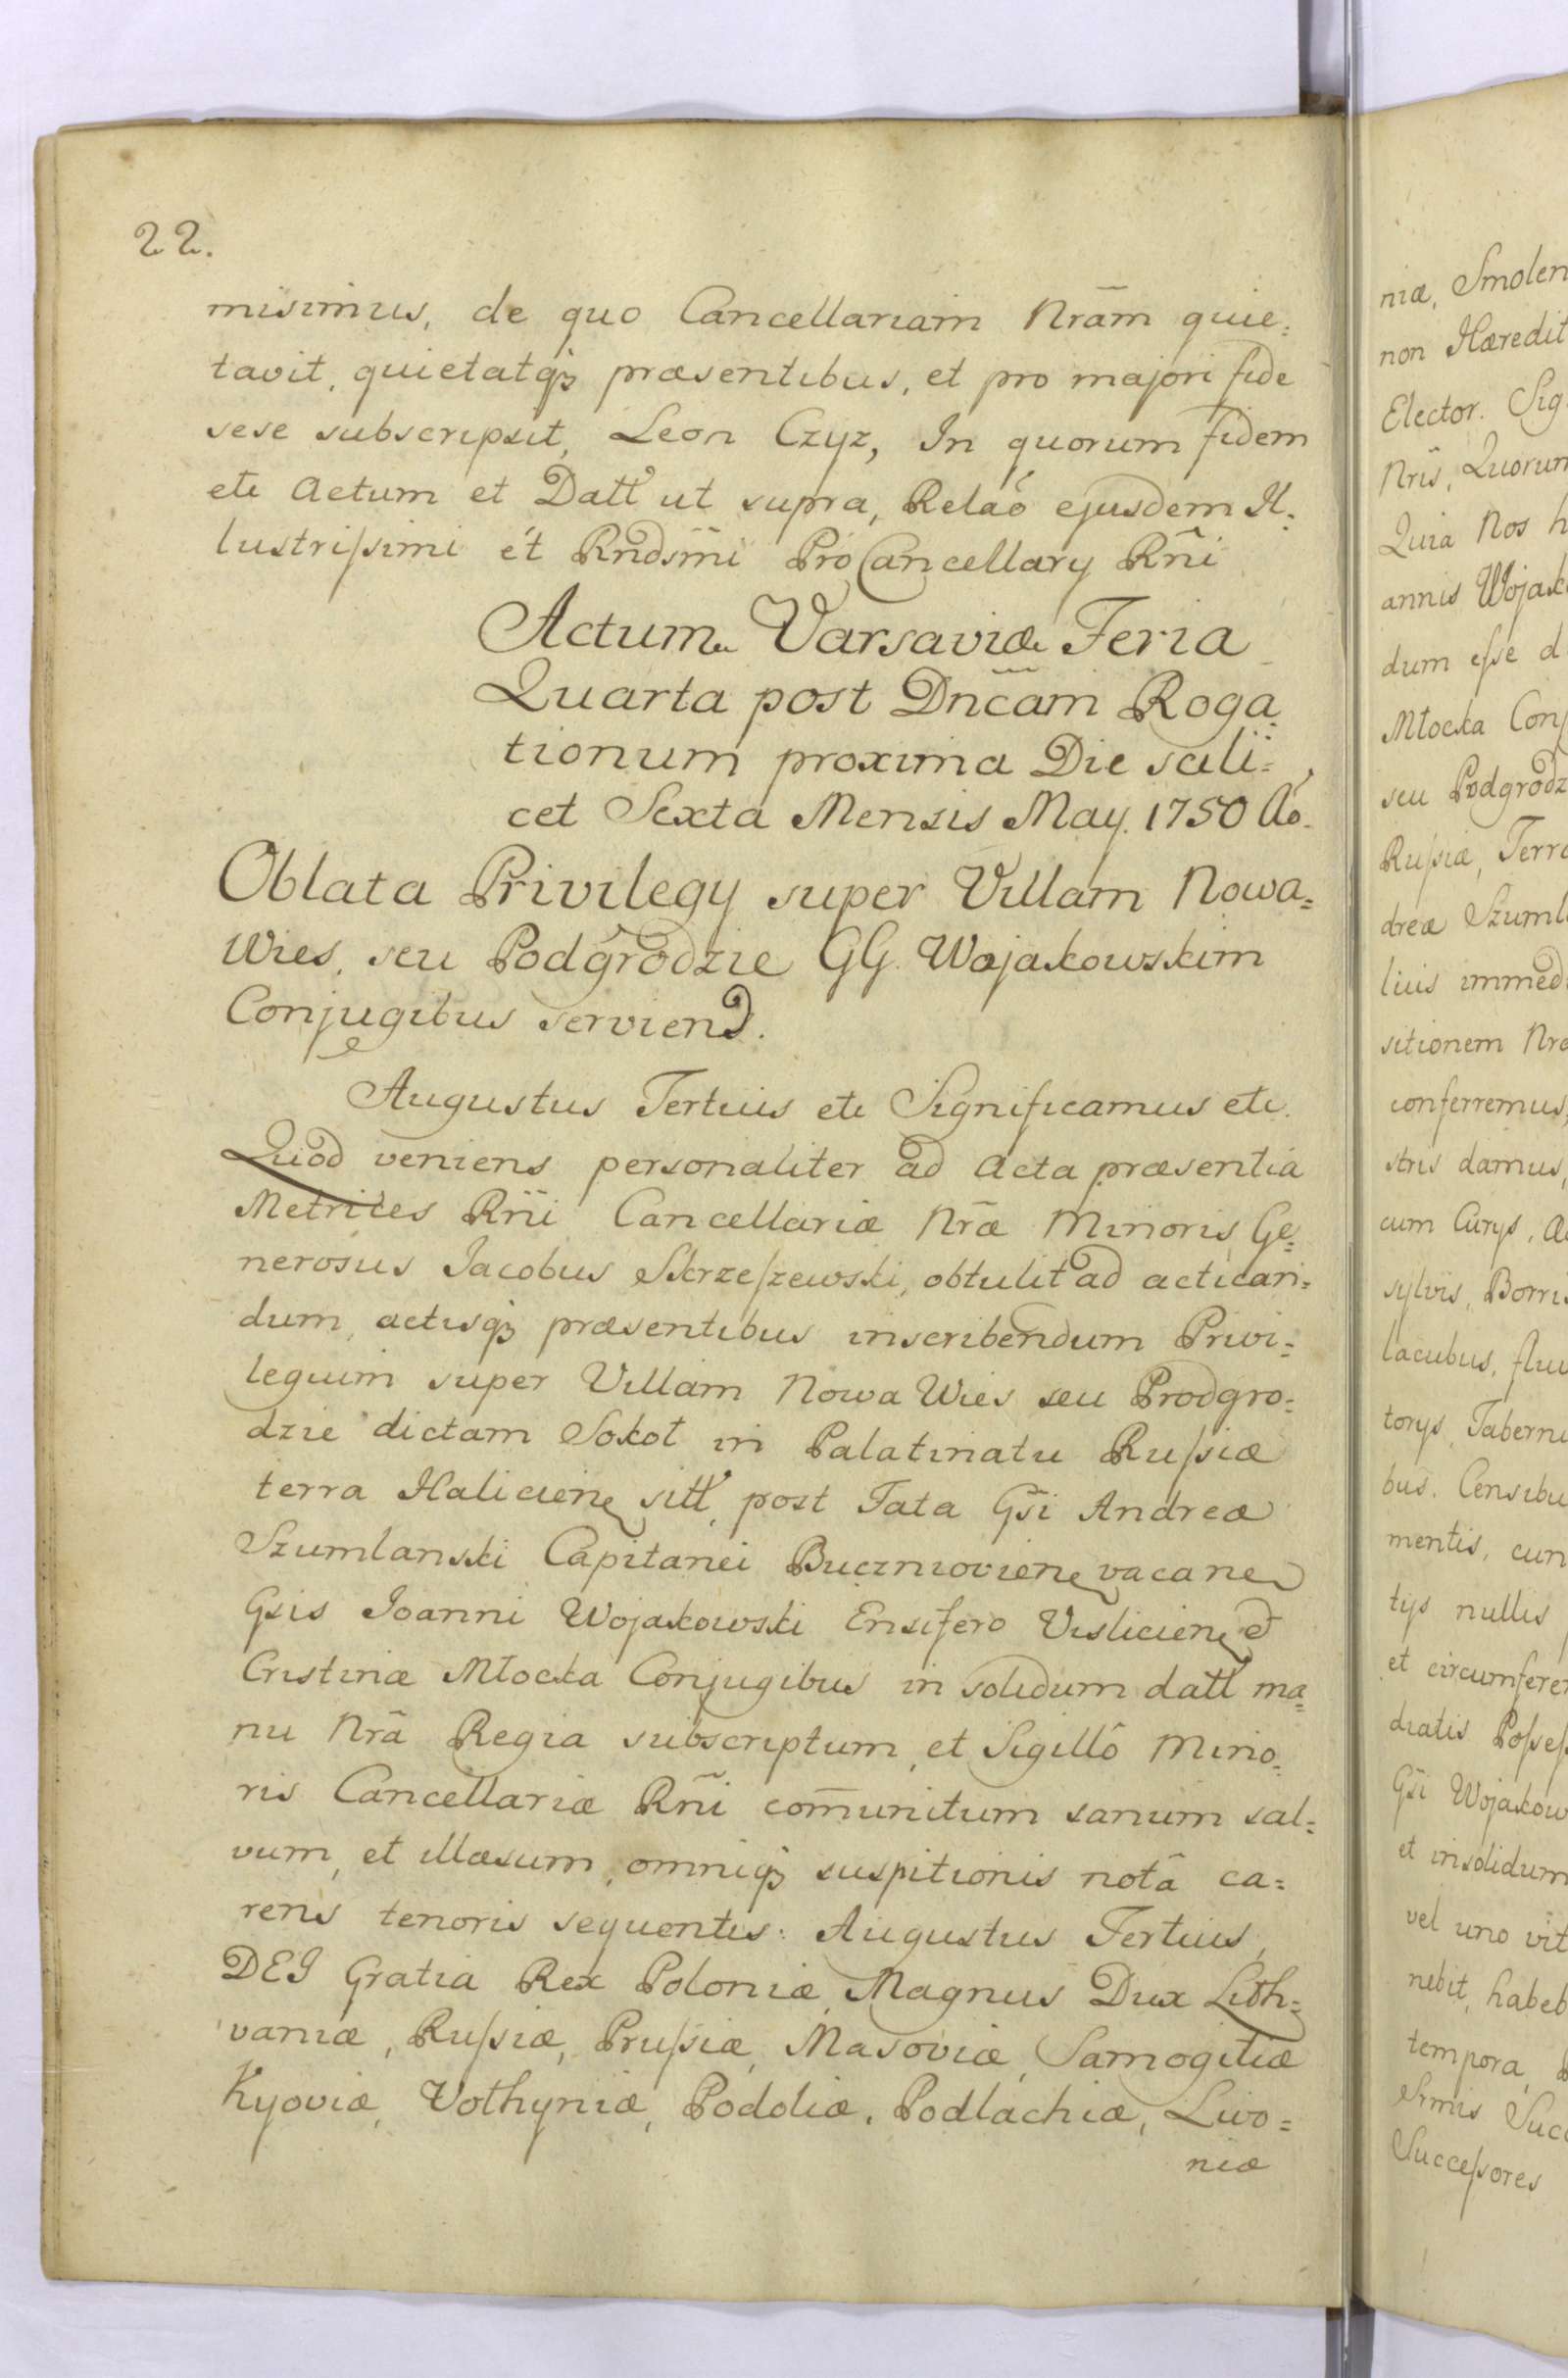 22.
misimus, de quo Cancellariam Nrãm quie=
tavit, quietatq₃ præsentibus, et pro majori fide
sese subscripsit, Leon Czyz, In quorum fidem
etc Actum et Datt ut supra, Relaõ ejusdem Il=
lustrissimi et Rndsmi ProCancellary Rñi
Actum Varsaviæ Feria
Quarta post Dncam Roga=
tionum proxima Die scili=
cet Sexta Mensis May. 1750 Aõ.
Oblata Privilegy super Villam Nowa=
Wies, seu Podgrodzie GG. Wojakowskim
Conjugibus serviend.
Augustus Tertius etc Significamus etc.
Quod veniens personaliter ad Acta præsentia
Metrices Rñi Cancellariæ Nræ Minoris Ge=
nerosus Jacobus Skrzeszewski, obtulit ad actican=
dum, actisq₃ præsentibus inscribendum Privi=
legium super Villam Nowa Wies seu Prodgro=
dzie dictam Sokoł in Palatinatu Russiæ
terra Haliciens sitt, post Fata Gsi Andreæ
Szumlanski Capitanei Buczniovien vacane
Gsis Joanni Wojakowski Ensifero Vislicien et
Cristinæ Młocka Conjugibus in solidum datt ma=
nu Nrã Regia subscriptum, et Sigillô Mino=
ris Cancellariæ Rñi com̃unitum sanum sal=
vum, et illæsum, omniq₃ suspitionis notâ ca=
rens tenoris sequentis: Augustus Tertius,
DEI Gratia Rex Poloniæ, Magnus Dux Lith=
vaniæ, Russiæ, Prussiæ, Masoviæ, Samogitiæ
Kyoviæ, Volhyniæ, Podoliæ, Podlachiæ, Livo=
niæ
niæ, Smolen
non Hæredit
Elector. Sig
Nris, Quorum
Quia Nos h
annis Wojak
dum esse d
Młocka Conj
seu Podgrodz
Russiæ, Terra
dreæ Szuml
lius immed
sitionem Nra
conferremus,
stris damus,
cum Curys, a
sylvis, Borris
lacubus, fluv
torys, Taberni
bus. Censibu
mentis, cun
tys nullis
et circumferen
diatis Posses
Gsi Wojakow
et insolidum
vel uno vit
nebit, habeb
tempora,
Simis Succ
Successores